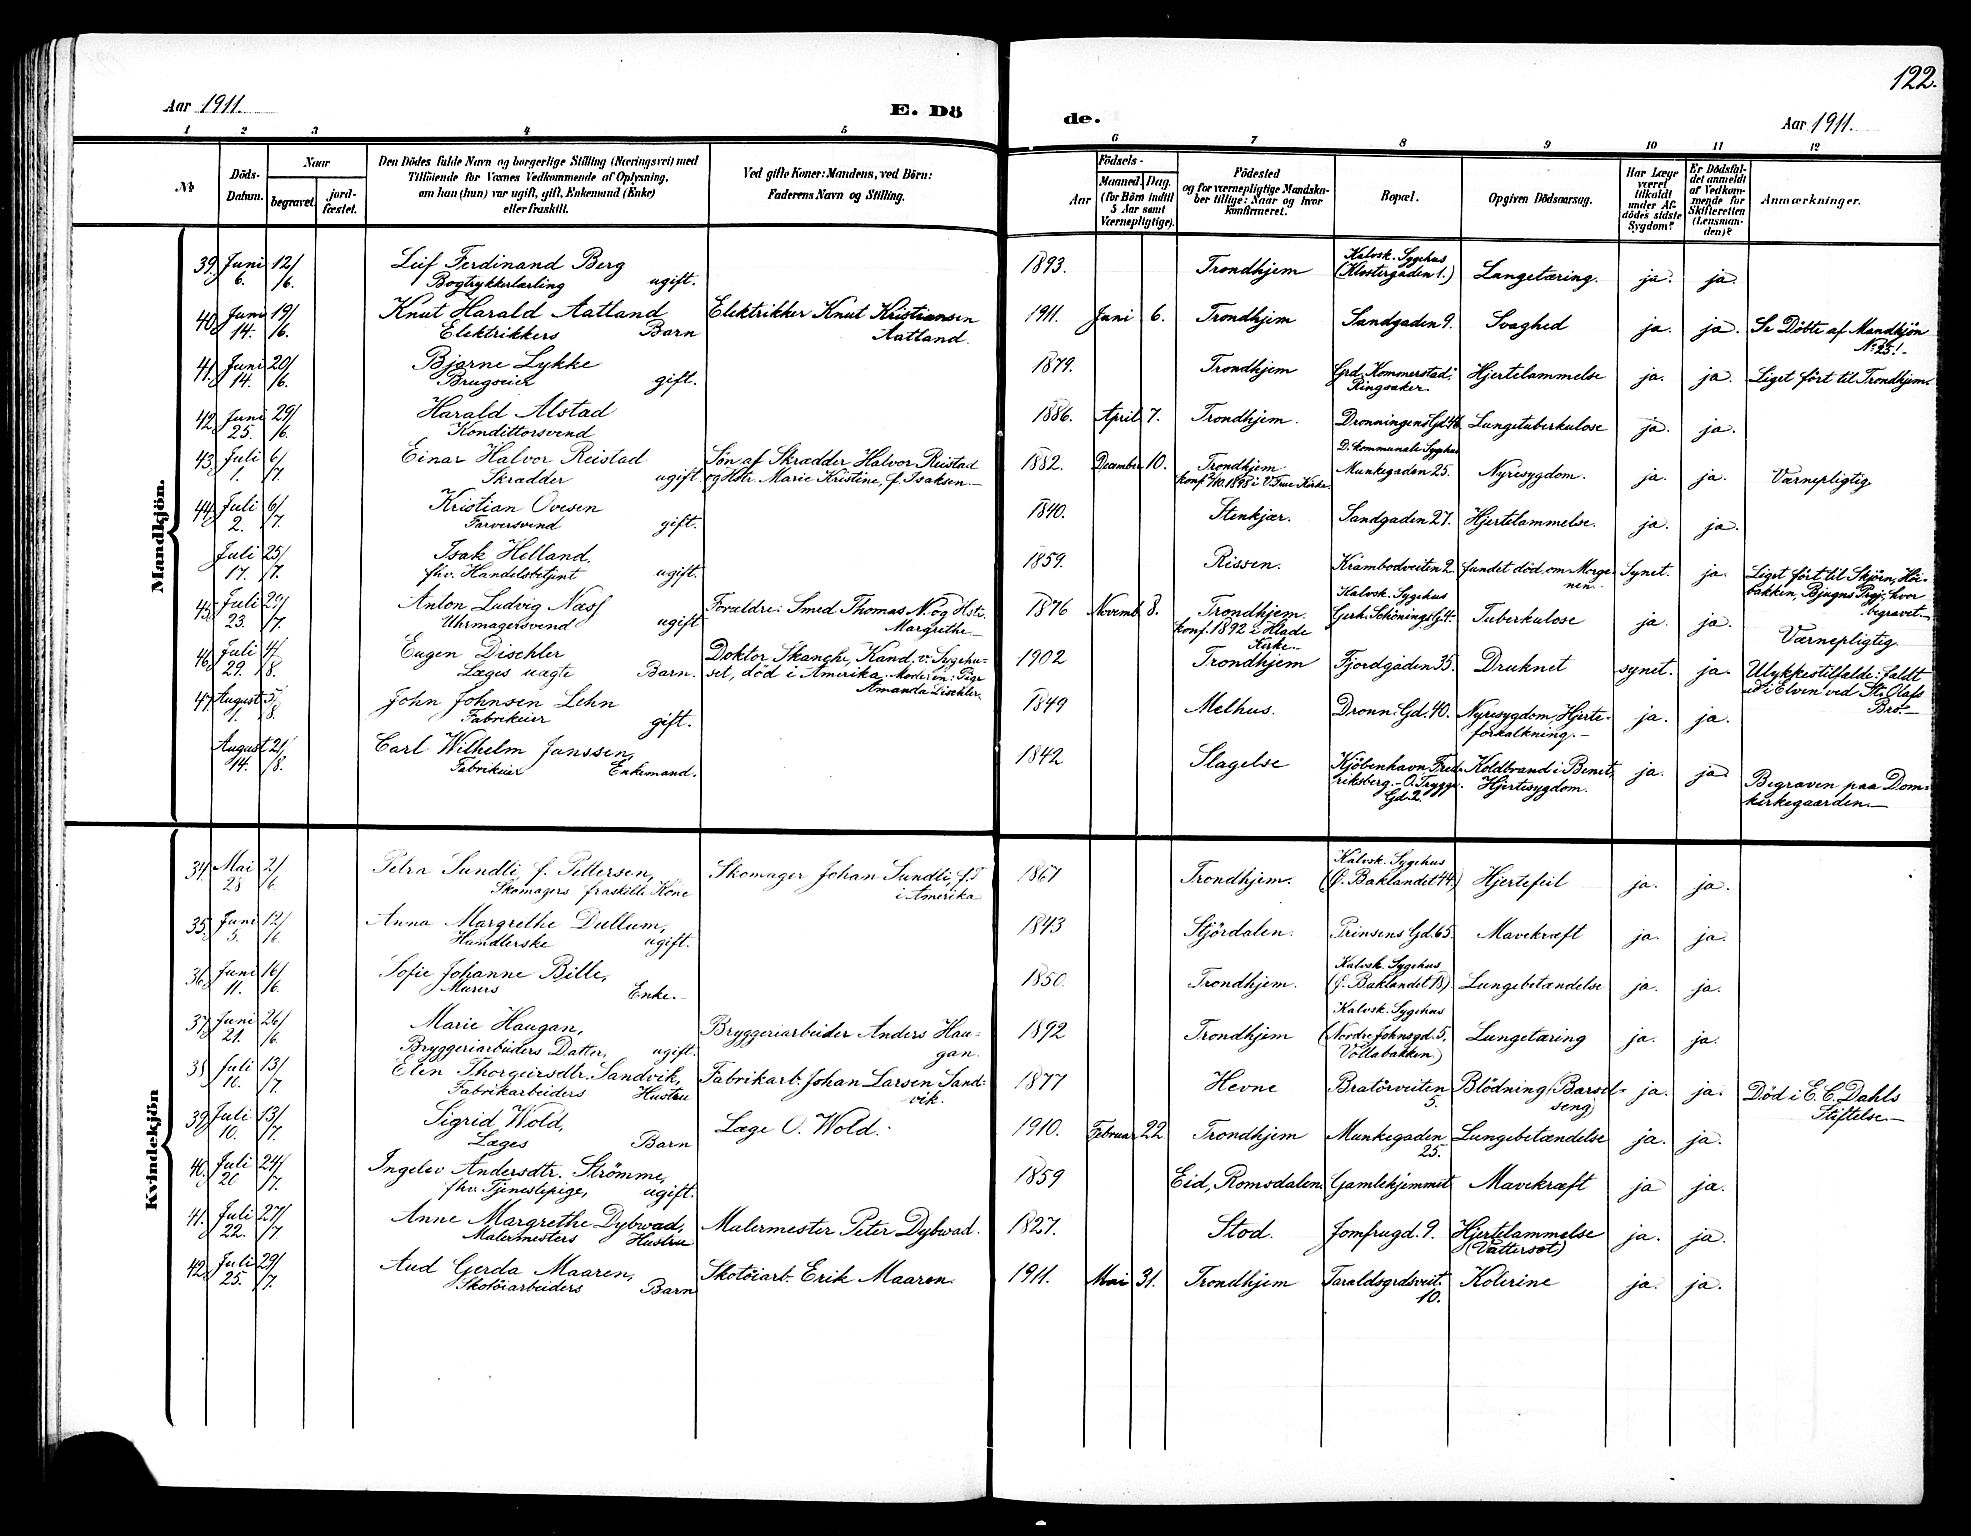 122.
Aar 1911.
E. Dö
de.
Aar 1911.
1 2 3 4 5 6 7 8 9 10 11 12
№
Döds-
Datum.
Naar
begravet.
jord-
fæstet.
Den Dödes fulde Navn og borgerlige Stilling (Næringsvei) med
Tilföiende for Voxnes Vedkommende af Oplysning,
om han (hun) var ugift, gift, Enkemand (Enke)
eller fraskilt.
Ved gifte Koner: Mandens, ved Börn:
Faderens Navn og Stilling.
Födsels-
Aar
Maaned.
Dag.
(for Börn indtil
5 Aar samt
Værnepligtige).
Födested
og for værnepligtige Mandska-
ber tillige: Naar og hvor
konfirmeret.
Bopæl.
Opgiven Dödsaarsag.
Har Læge
været
tilkaldt
under Af-
dödes sidste
Sygdom?
Er Dödsfal-
det anmeldt
af Vedkom-
mende for
Skifteretten
(Lensman-
den)?
Anmærkninger.
Mandkjön.
39. Juni 6. 12/6. Leif Ferdinand Berg 1893. Trondhjem Kalvsk. Sygehus (Klostergaden 1.) Lungetæring. ja. ja.
Bogtrykkerlærling ugift.
40. Juni 14. 19/6. Knut Harald Aatland Elektrikker Knut Kristiansen 1911. Juni 6. Trondhjem Sandgaden 9. Svaghed ja. ja. Se Döbte af Mandkjön
Elektrikkers Barn Aatland. No 25!-
41. Juni 14. 20/6. Bjarne Lykke 1879. Trondhjem Grd. Kommerstad, Ringsaker. Hjertelammelse ja. ja. Liget fört til Trondhjem.
Brugseier gift.
42. Juni 25. 29/6. Harald Alstad 1886. April 7. Trondhjem. Dronningens Gd. 46 Lungetuberkulose ja. ja.
Kondittorsvend
43. Juli 1. 6/7. Einar Halvor Reistad Søn af Skrædder Halvor Reistad 1882. December 10. Trondhjem D. kommunale Sygehus Munkegaden 25. Nyresygdom. ja. ja. Værnepligtig
Skrædder ugift. og Hstr. Marie Kristine, f. Isaksen.- konf. 1898 i V. Frue Kirke.
44. Juli 2. 6/7. Kristian Ovesen 1840. Stenkjær. Sandgaden 27. Hjertelammelse. ja. ja.
Farversvend gift.
Juli 17. 25/7. Isak Helland. 1859. Rissen. Krambodveiten 2. fundet död om Morge-nen. Synet. ja. Liget fört til Skjörn, Höi-
fhv. Handelsbetjent ugift. bakken, Bjugns Prgj. hvor
begravet.-
45. Juli 23. /7. Anton Ludvig Næss Forældre: Smed Thomas N. og Hstr. 1876 Novemb. 8. Trondhjem. Kalvsk. Sygehus Gerh. Schönings G. 4. Tuberkulose ja. ja. Værnepligtig
Uhrmagersvend ugift Margrethe.- konf. 1892 i Hlade Kirke.-
46. Juli 29. 4/8. Eugen Dischler Doktor Skanche, Kand. v. Sygehu- 1902 Trondhjem Fjordgaden 35. Druknet synet. ja. Ulykkestilfælde: faldt
Læges uægte Barn. set, död i Amerika. Moderen: Pige ud i Elven ved St. Olafs
Amanda Dischler. Bro.-
47. August 1. 5/8. John Johnsen Lehn 1849 Melhus. Dronn. Gd. 40. Nyresygdom, Hjerte-forkalkning.- ja. ja.
Fabrikeier gift.
August 14. 21/8. Carl Wilhelm Janssen, 1842 Slagelse Kjöbenhavn Fred-riksberg.- O. Trygge. Gd. 2. Koldbrand i Benet, Hjertesygdom. ja. ja Begraven paa Dom-
Fabrikeier Enkemand. kirkegaarden.-
Kvindekjön
34. Mai 28 2/6. Petra Sundli, f. Pettersen, Skomager Johan Sundli, f.T 1867 Trondhjem. Kalvsk. Sygehus (Ö. Baklandet 44.) Hjertefeil ja. ja.
Skomagers fraskilte Kone i Amerika
35. Juni 5. 12/6. Anna Margrethe Dullum, 1843 Stjördalen. Prinsens Gd. 65. Mavekræft ja. ja.
Handlerske ugift.
36. Juni 11. 16/6. Sofie Johanne Bille, 1850. Trondhjem. Kalvsk. Sygehus (Ö. Baklandet 18) Lungebetændelse ja. ja.
Murers Enke.-
37. Juni 21. 26/6. Marie Haugan, Bryggeriarbeider Anders Hau- 1892 Trondhjem Kalvsk. Sygehus (Nordre Johnsgd. 5, Vollabakken) Lungetæring ja. ja.
Bryggeriarbeiders Datter, ugift. gan.
38 Juli 10. 13/7. Elen Thorgeirsdtr. Sandvik, Fabrikarb. Johan Larsen Sand- 1877 Hevne Bratörveiten 5. Blödning (Barsel-seng) ja. ja. Död i E. C. Dahls
Fabrikarbeiders Hustru vik. Stiftelse.-
39. Juli 10. 13/7. Sigrid Wold, Læge O. Wold. 1910. Februar 22 Trondhjem Munkegaden 25. Lungebetændelse ja. ja.
Læges Barn
40. Juli 20 24/7. Ingelev Andersdtr. Strömme, 1859 Eid, Romsdalen. Gamlehjemmet Mavekræft ja ja.
fhv. Tjenestepige, ugift.
41. Juli 22. 27/7. Anne Margrethe Dybwad, Malermester Peter Dybwad. 1827. Stod. Jomfrugd. 9. Hjertelammelse (Vattersot) ja. ja.
Malermesters Hustru
42. Juli 25. 29/7. Aud Gerda Maaren, Skotöiarb. Erik Maaren. 1911. Mai 31. Trondhjem Taraldsgrdsveit. 10. Kolerine ja. ja.
Skotöiarbeiders Barn